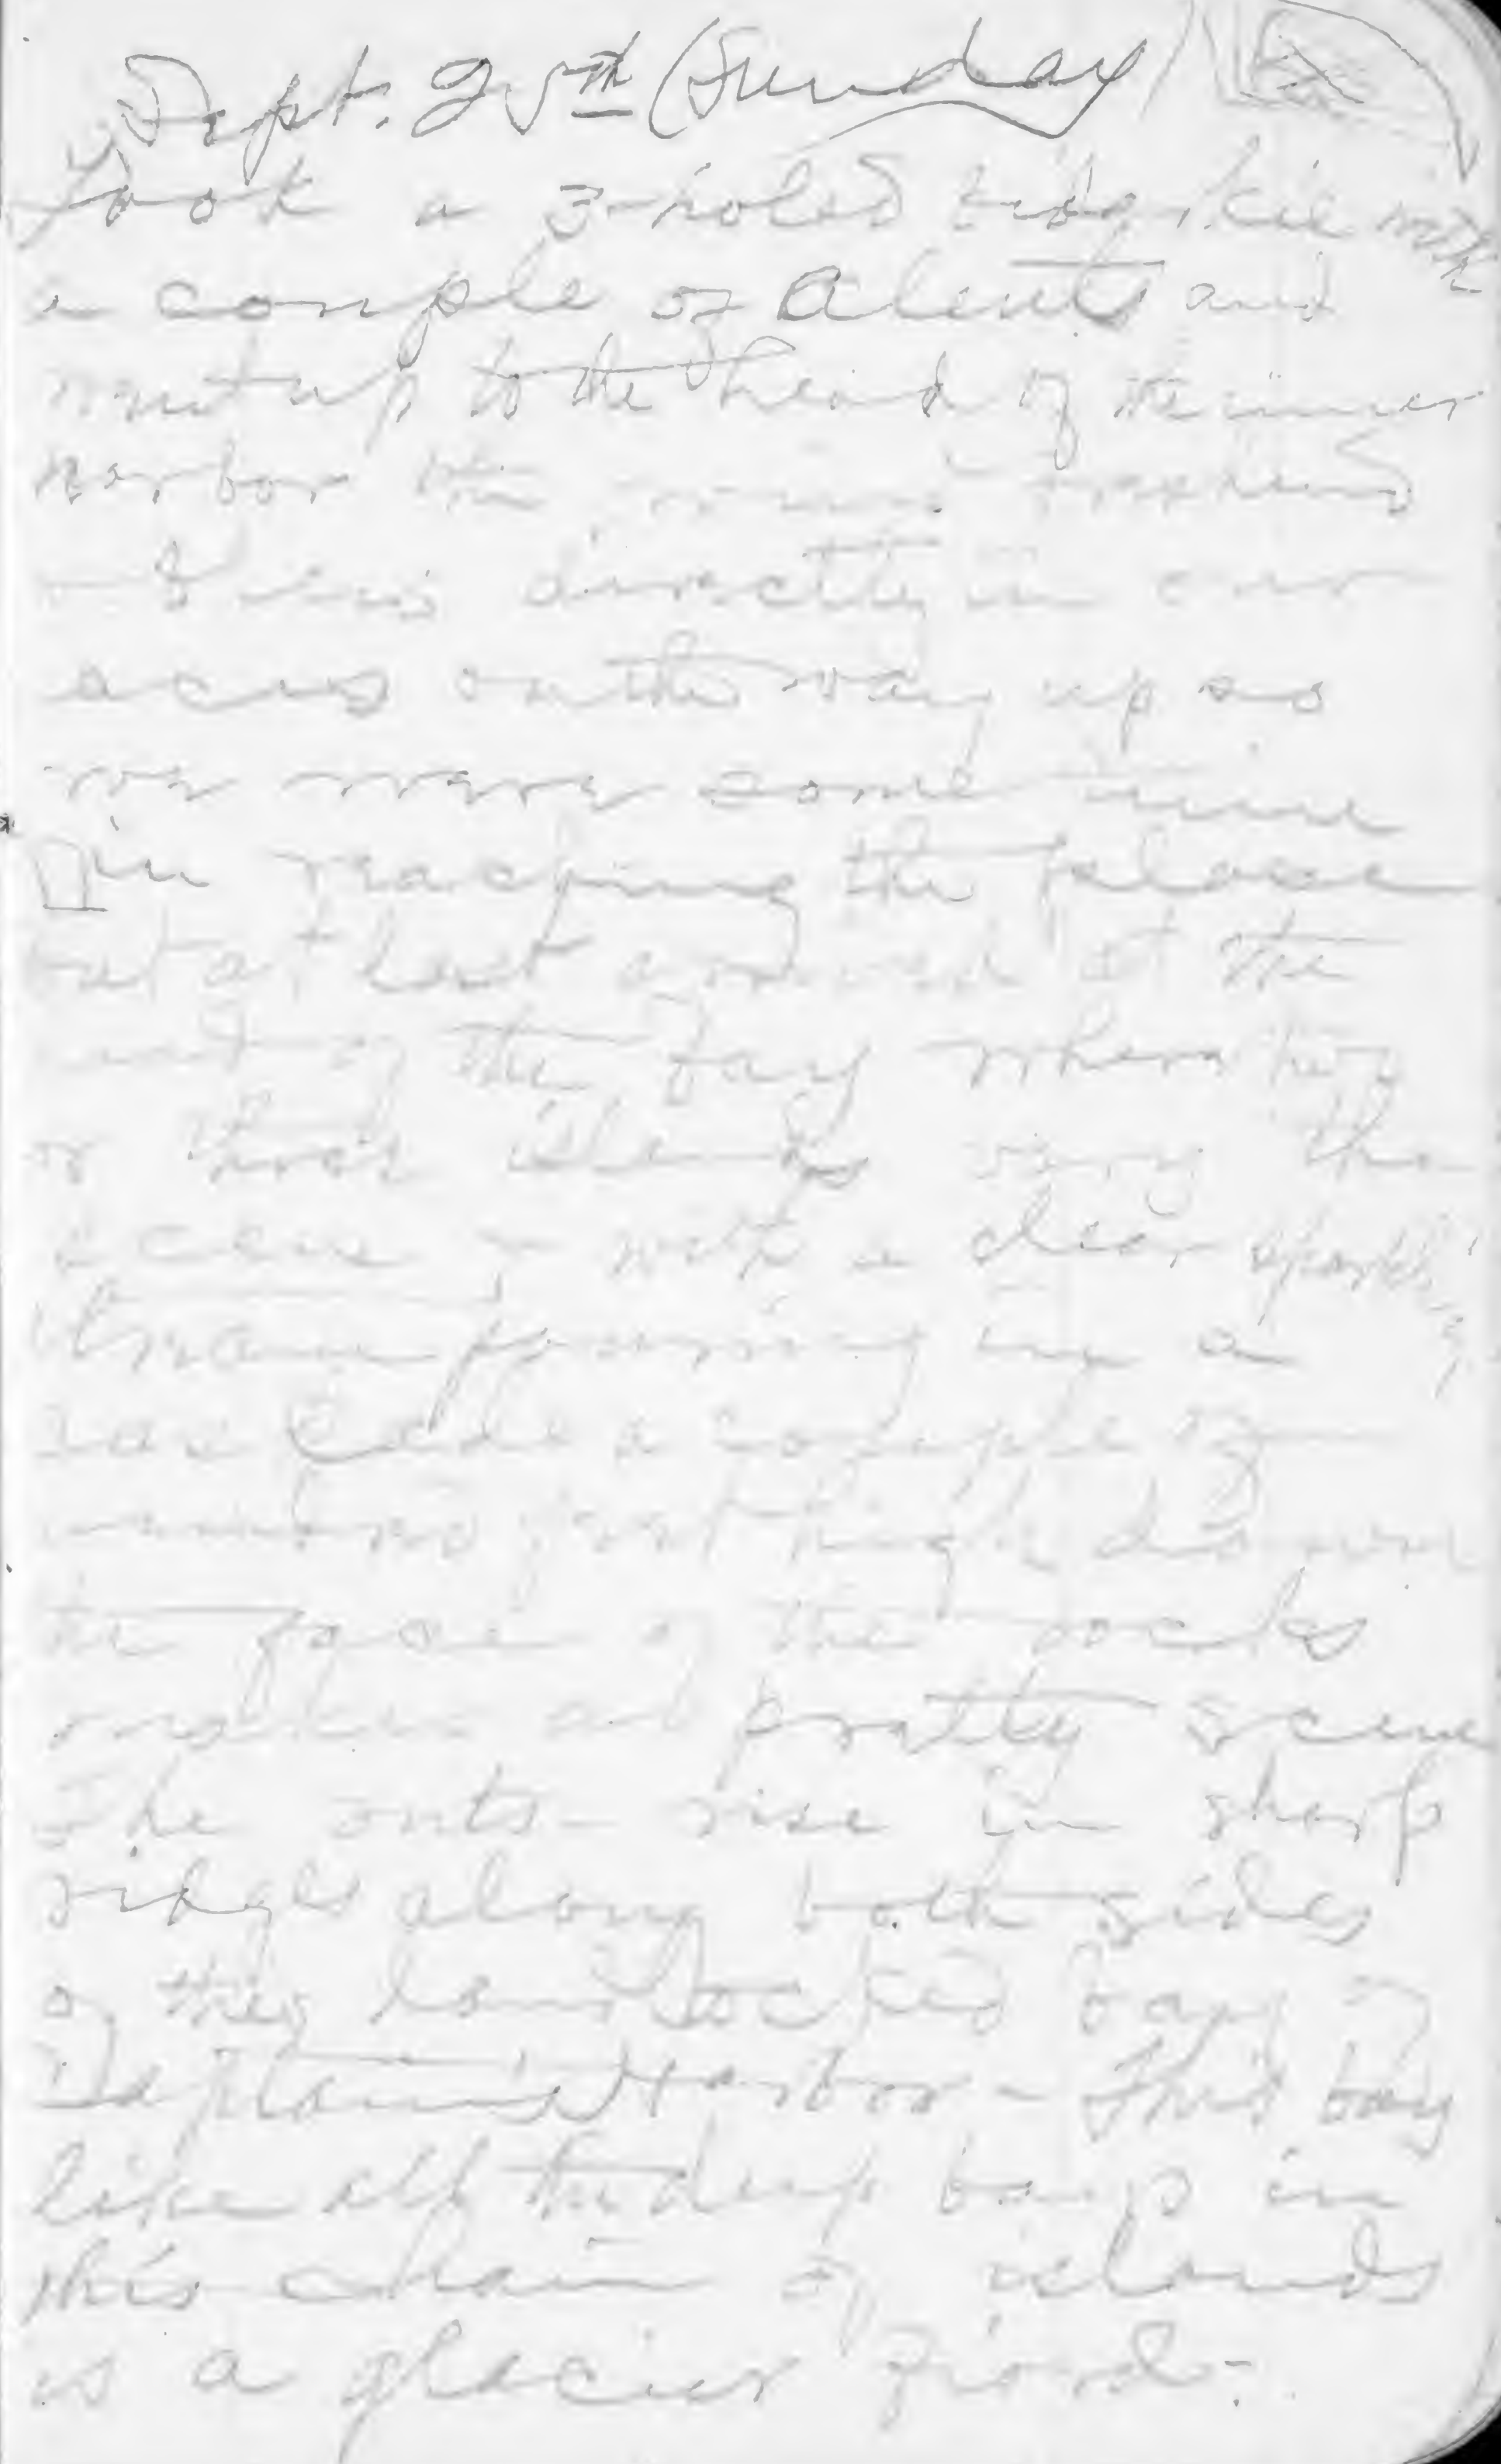 Sept. 25th (Sunday)
Took a 3-holed bidarkie with
a couple of Aleuts and
went up to the head of the inner
harbor the wind
directly in our
on the way up so
we were some time
in reaching the place
but at last arrived at the
of the bay where two
or three islands vary the
scene & with a clear sparkling
stream pouring in a
cascade a couple of
feet high down
the face of the rocks
makes a pretty scene
The rise in sharp
ridges along both sides
of this landlocked bay of
Captains Harbor - This bay
like all the deep bays in
this chain of islands
is a glacier fiord -